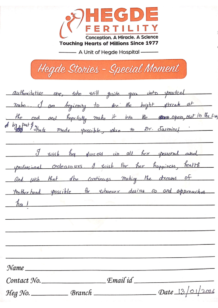 HEGDE
FERTILITY
Conception. A Miracle. A Science
Touching Hearts of Millions Since 1977
A Unit of Hegde Hospital
Hegde Stories - Special Moment
authoritative one, who will guide you into practical
I am beginning to see the bright at
the end and hopefully make it into the open space, out in the
made possible, due to Dr.
I wish her success in all her personal and
professional endeavours. I wish for her happiness, health
and wish that she continues making the dreams of
Motherhood possible to whoever desires it and approaches
her!
Name
Contact No. Email id
Heg No. Branch Date 13/01/2024